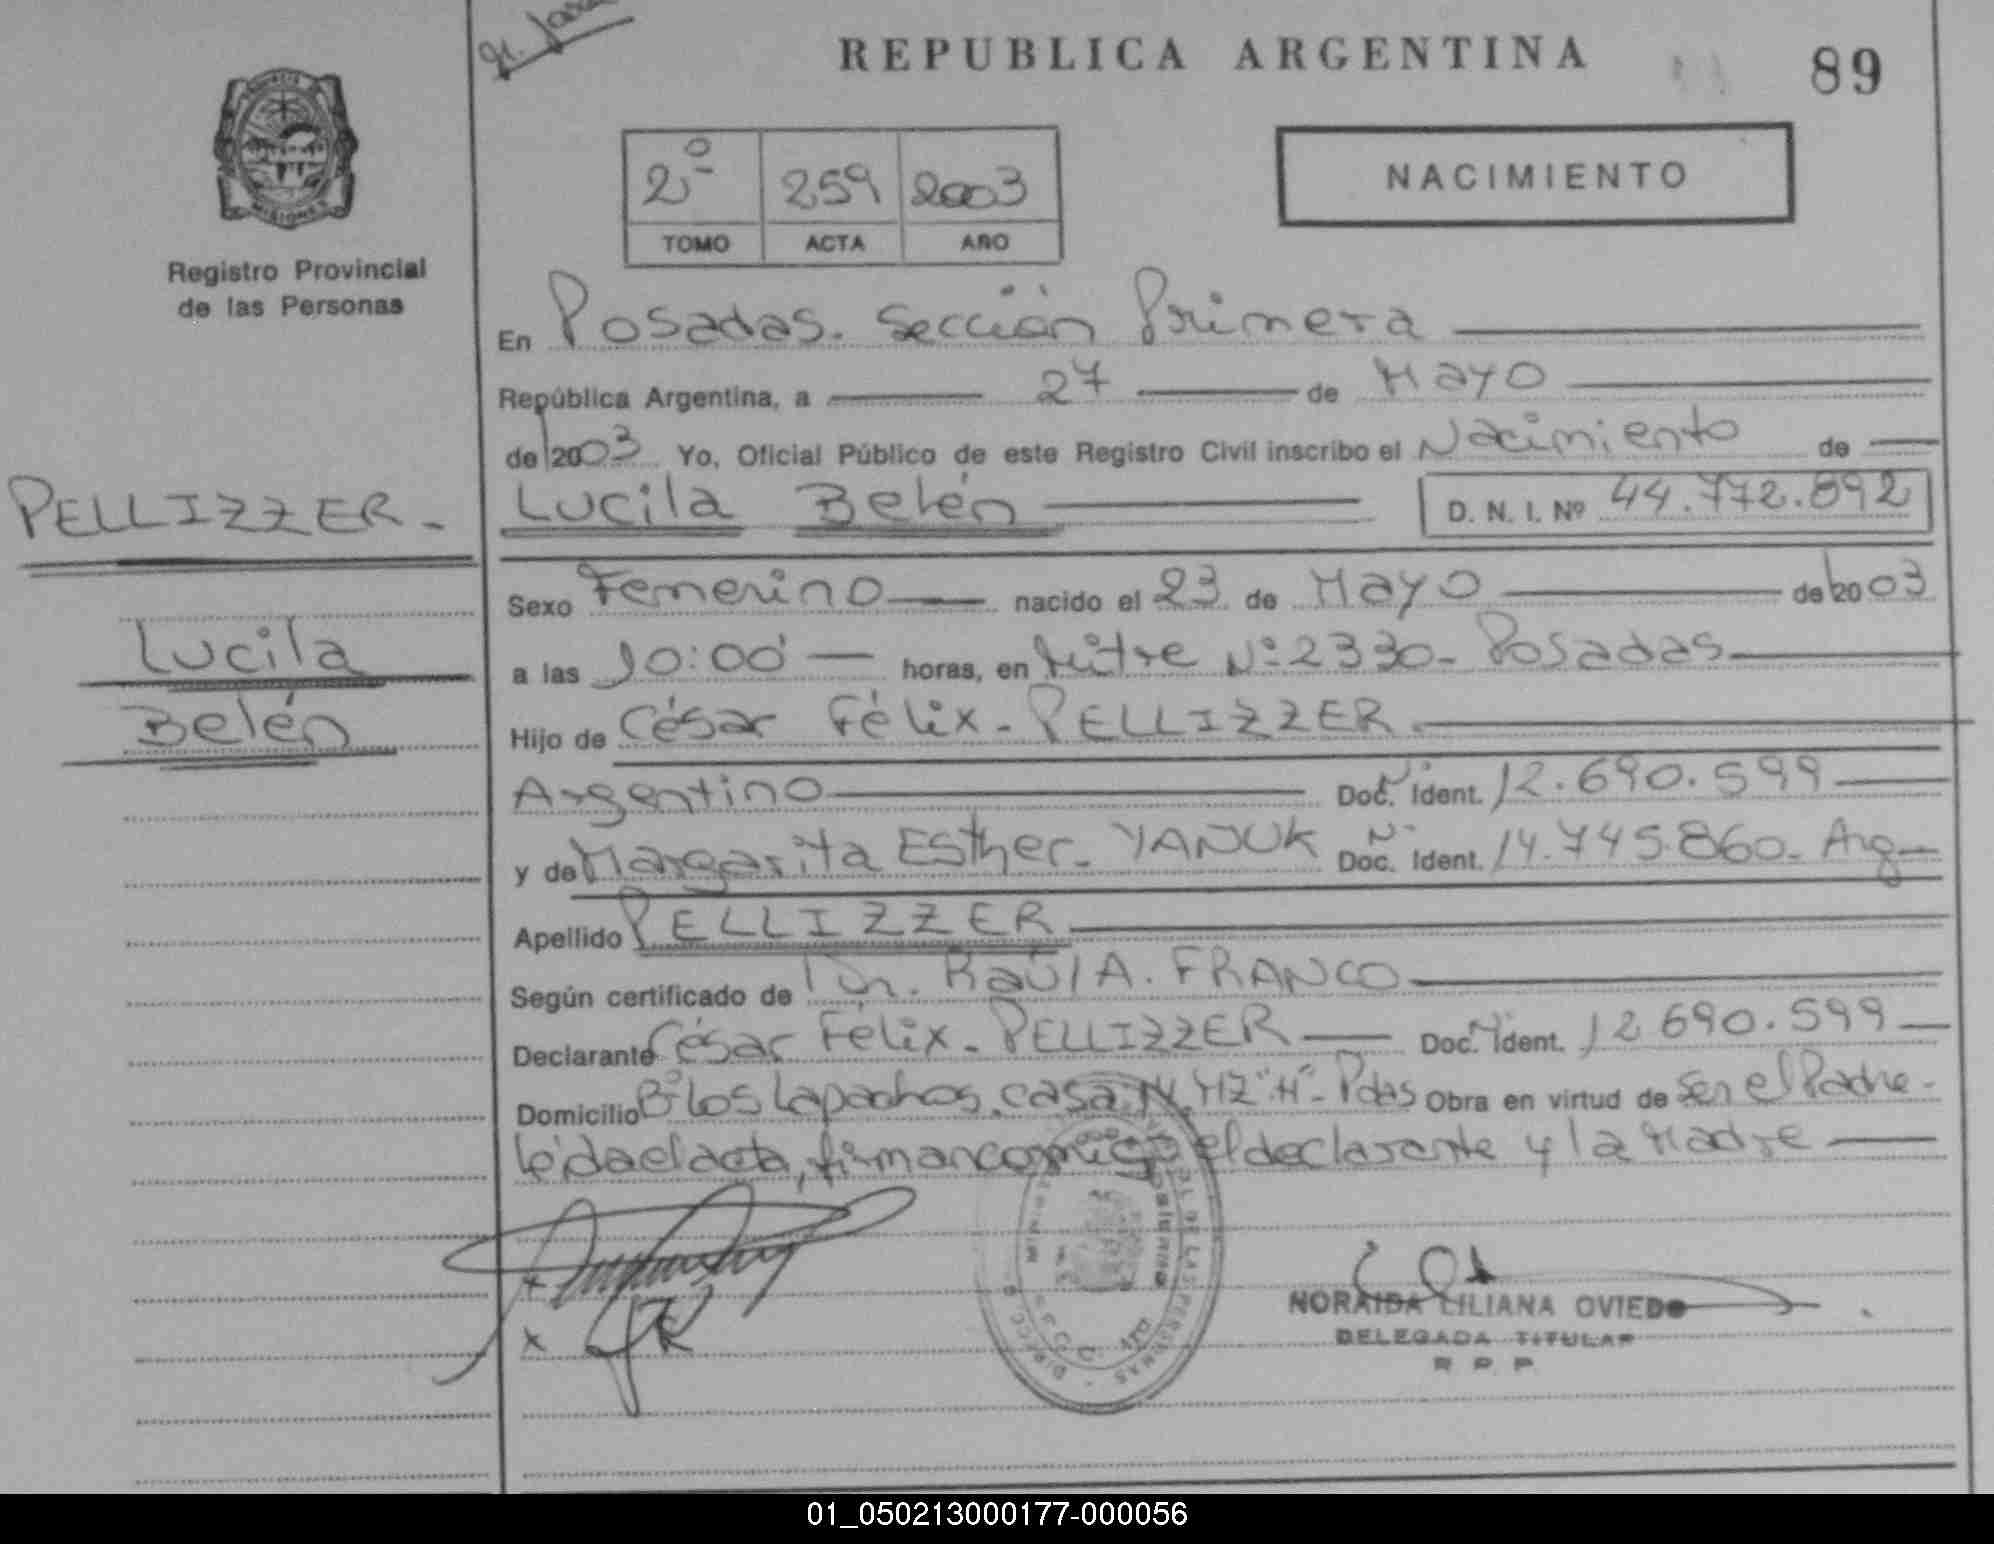 REPUBLICA ARGENTINA
89
2º 259 2003
TOMO ACTA AÑO
NACIMIENTO
MISIONES
Registro Provincial
de las Personas
En Posadas. Sección Primera
República Argentina, a 27 de Mayo
de 2003 Yo, Oficial Público de este Registro Civil inscribo el Nacimiento de
PELLIZZER.
Lucila Belén D. N. I. Nº 44.772.892
Sexo Femenino nacido el 23 de Mayo de 2003
Lucila
a las 10:00 horas, en Mitre Nº 2330. Posadas
Belén
Hijo de César Félix. PELLIZZER.
Argentino Doc. Nº Ident. 12.690.599
y de Margarita Esther. YANUK Doc. Nº Ident. 14.745.860. Arg
Apellido PELLIZZER
Según certificado de Dr. Raúl A. FRANCO
Declarante César Félix. PELLIZZER Doc. Nº Ident. 12.690.599
Domicilio Bº Los Lapachos. casa MZ "H". Pdas Obra en virtud de ser el Padre.
Leída el acta, firman conmigo el declarante y la Madre
NORAIDA LILIANA OVIEDO
DELEGADA TITULAR
R P P
01_050213000177-000056